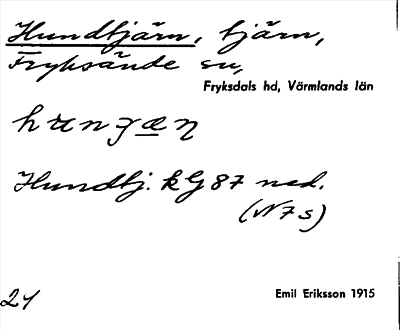 Hundtjärn, tjärn,
Fryksände sn,
Fryksdals hd, Värmlands län
Hundtj. kG 87 ned.
(N 7 s)
24
Emil Eriksson 1915